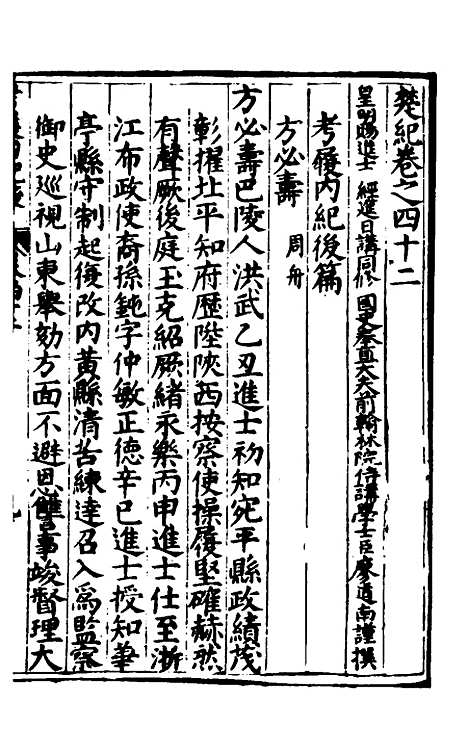 楚紀卷之四十二
皇明賜進士 經筵日講同修 國史奉直大夫前翰林院侍講學士臣廖道南謹撰
考履内紀後篇
方必壽 周舟
方必壽巴陵人洪武乙丑進士初知宛平縣政績茂
彰擢北平知府歷陞陜西按察使操履堅確赫然
有聲厥後庭玉克紹厥緒永樂丙申進士仕至浙
江布政使裔孫鈍字仲敏正德辛巳進士授知華
亭縣守制起復改内黄縣清苦練達召入爲監察
御史巡視山東舉劾方面不避恩讐事竣督理大